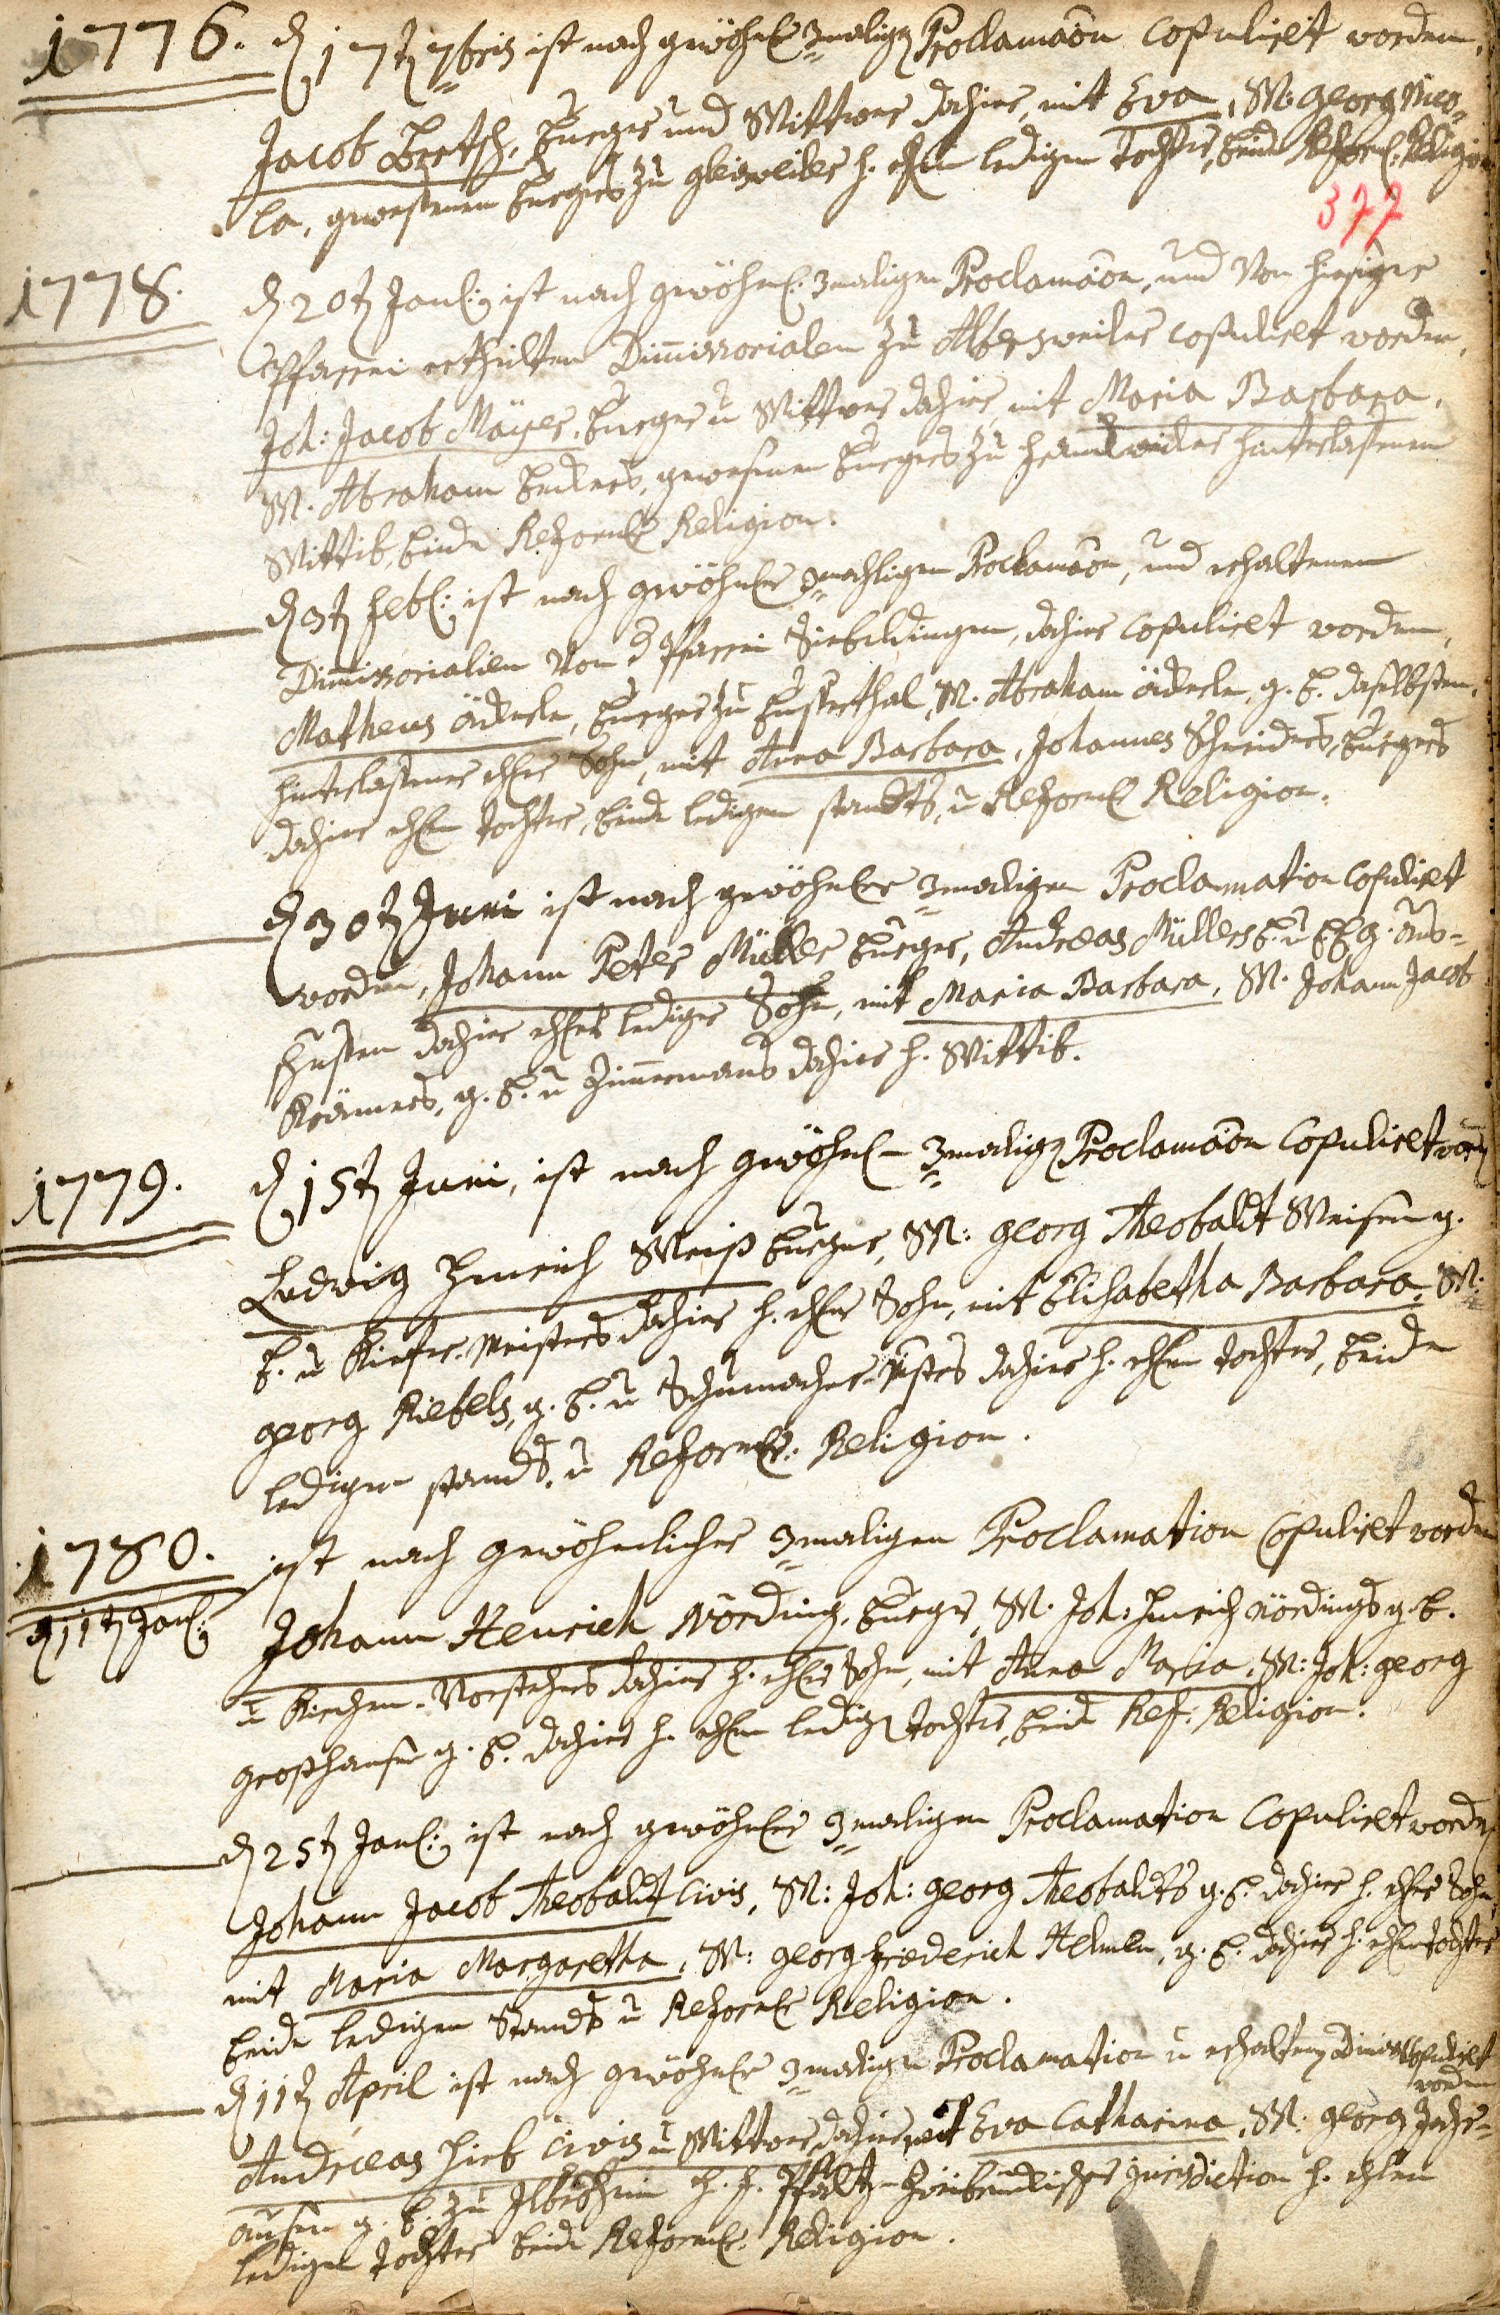 1776. d 17t 7bris ist nach gewöhnl 3maligen Proclamaon Copulirt worden,
Jacob Bretsch, Burger und Wittwer dahier, mit Eva, W. Georg Nico-
la, gewesenen burgers zu gleisweiler h. ehl ledigen tochter, beide Reform. Religion
377
1778. d 20t Janr: ist nach gewöhnl. 3maligen Proclamaon, und Von hiesiger
Pfarrei ertheilten Dimissorialen zu Albersweiler copulirt worden,
Joh: Jacob Mäyer, burger u Wittwer dahier mit Maria Barbara,
W. Abraham Beckers, gewesenen burgers zu hinterlassenen
Wittib, beide Reforml Religion.
d 3t Febr: ist nach gewöhnler 3mahligen Proclamaon, und erhaltenem
Dimissorialien Von d Pfarrei Siebeldingen, dahier copulirt worden,
Matheus äckerle, burger zu Eusserthal, W. Abraham äckerle, g. b. daselbsten,
hinterlassener ehler Sohn, mit Anna Barbara, Johannes Schneiders, burgers
dahier ehln tochter, beide ledigen standts, u Reforml Religion.
d 30t Juni ist nach gewöhnler 3maligen Proclamation Copulirt
worden, Johann Peter Müller burger, Andreas Müllers b. u
dahier ehler lediger Sohn, mit Maria Barbara, W. Johann Jacob
Krämers, g. b. u Zimmermans dahier h. Wittib.
1779. d 15t Juni, ist nach gewöhnl- 3malig Proclamaon Copulirt worden
Ludwig Henrich Weiss burger, W: Georg Theobaldt Weisen g.
b. u Kiefer-Meisters dahier h. ehler Sohn, mit Elisabetha Barbara, W:
georg Riebels, g. b. u Schumacher-Msters dahier h. ehln tochter, beide
ledigen stands, u Reforml: Religion.
1780. ist nach gewöhnlicher 3maligen Proclamation Copulirt worden
d 11t Janr: Johann Henrich Nörding, burger, W. Joh: Henrich Nördings g. b.
u Kirchen-Vorstehers dahier h. ehler Sohn, mit Anna Maria, W: Joh: georg
grosshansen g. b. dahier h. ehln ledigen tochter, beide Ref: Religion.
d 25t Janr: ist nach gewöhnler 3maligen Proclamation Copulirt worden
Johann Jacob Theobaldt Civis, W: Joh: georg Theobaldts g. b. dahier h. ehler Sohn,
mit Maria Margaretha, W: georg friederich Helmen, g. b. dahier h. ehln tochter
beide ledigen Stands u Reforml Religion.
d 11t April ist nach gewöhnler 3maligen Proclamation u erhalten Copulirt
worden
Andreas Hieb Civis u Wittwer dahier mit Eva Catharina, W: georg
g. b. zu Ilbesheim h. f. Pfaltz-Zweibrückischer jurisdiction h. ehlen
ledigen tochter beide Reforml. Religion.